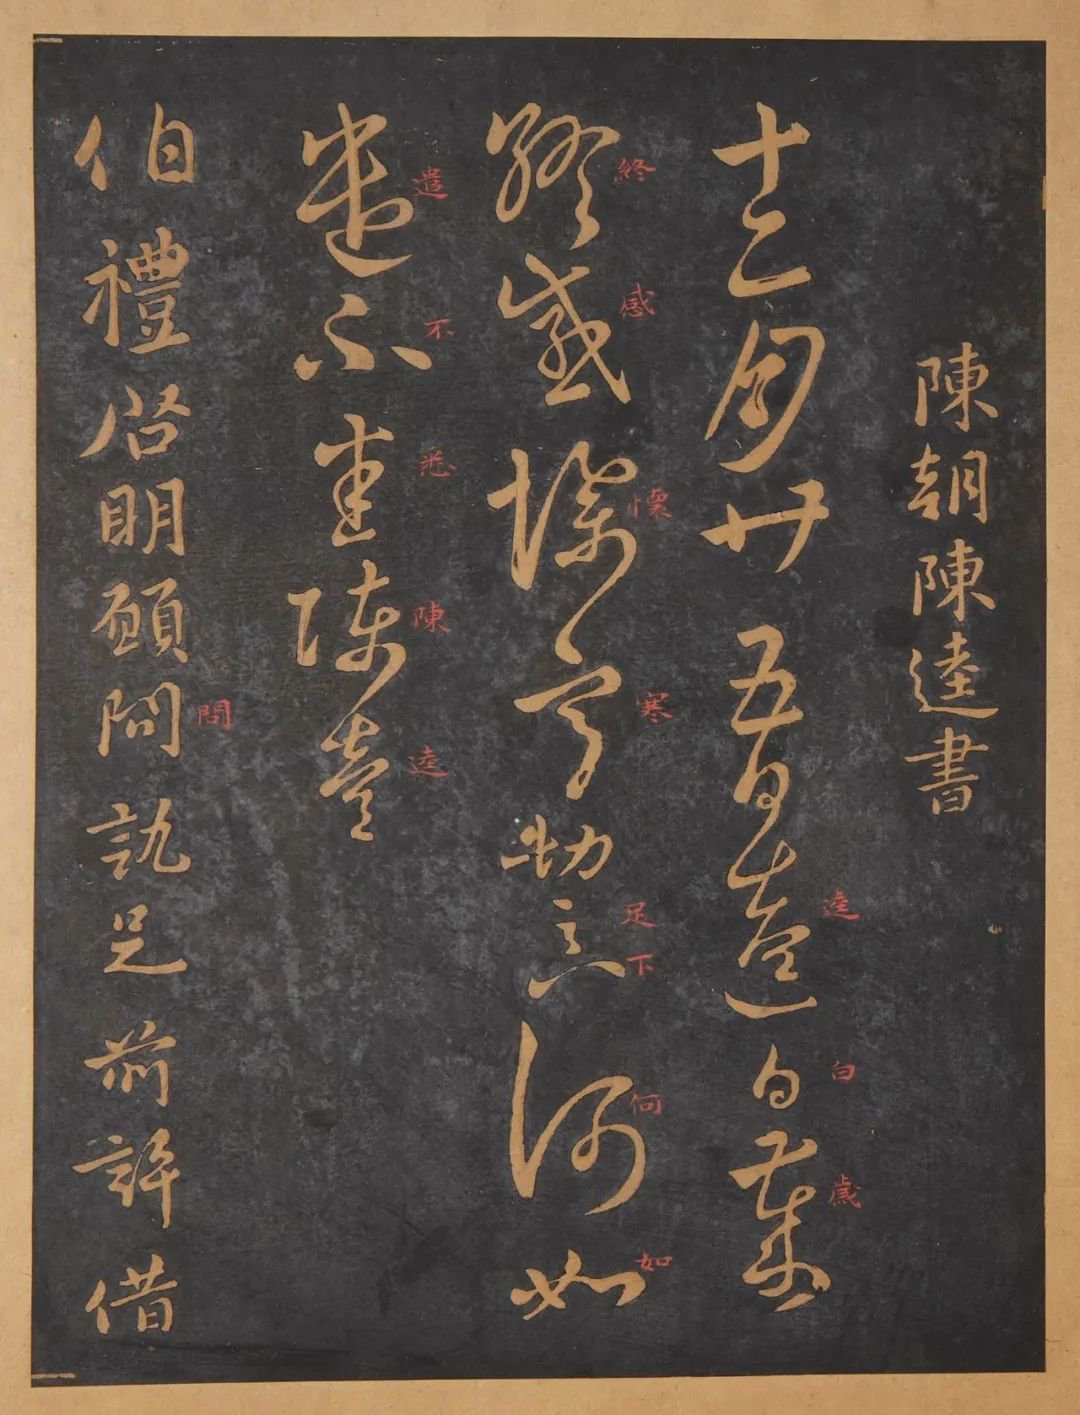 陳朝陳逵書
逵白歲
十二月廿五日逵白歲
終感懷寒足下何如
終感懷寒切足下何如
遣不悉陳逵
遣不悉陳逵
問
伯禮啓明願問訊足前許借